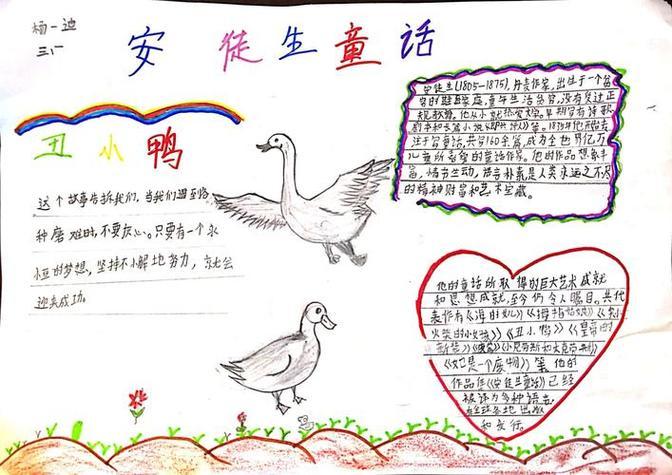 杨一迪
三、
安徒生童话
丑小鸭
这个故事告诉我们，当我们遇到各
种磨难时，不要灰心。只要有一个永
恒的梦想，坚持不懈地努力，就会
迎来成功。
安徒生(1805—1875)，丹麦作家，出生于一个贫
穷的鞋匠家庭，童年生活贫苦，没有受过正
规教育。他从小就热爱文学。早期写有诗歌
剧本和长篇小说《即兴诗人》等。1835年他开始专
注于写童话，共写160余篇，成为全世界亿万
儿童所喜爱的童话作家。他的作品想象丰
富，情节生动，语言朴素，是人类永远之不尽
的精神财富和艺术宝藏。
他的童话所取得的巨大艺术成就
和思想成就，至今仍令人瞩目。其代
表作有《海的女儿》《拇指姑娘》《卖小
火柴的小女孩》《丑小鸭》《皇帝的
新装》
《她是一个废物》等，他的
作品《安徒生童话》已经
被译为多种语言，
在全球各地出版
和发行。